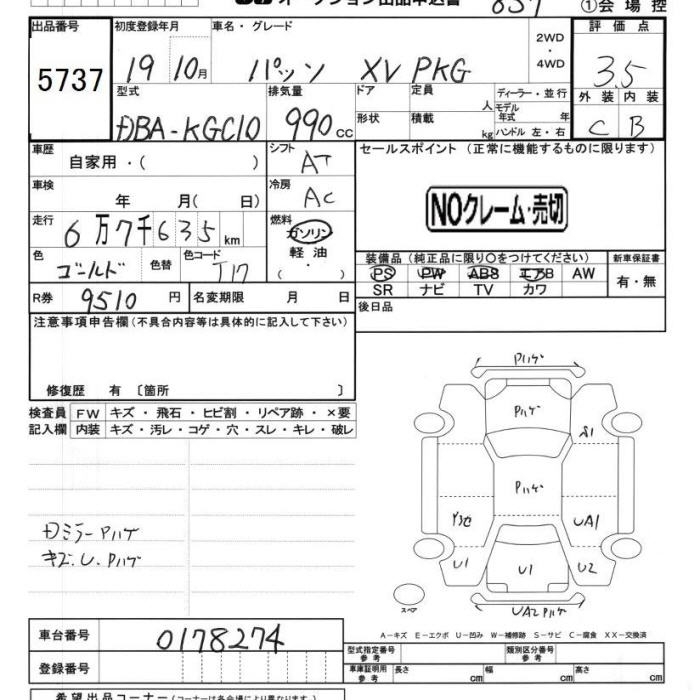 オークション出品申込書
①会 場 控
出品番号 初度登録年月 車名・グレード 2WD ・ 4WD 評 価 点
5737 19 10月 パッソ XV PKG 3.5
型式 排気量 ドア 定員 人 ディーラー・並行 外 装 内 装
DBA-KGC10 990 cc 形状 積載 kg モデル年式 年式 ハンドル 左・右 C B
車歴 自家用・( ) シフト AT セールスポイント (正常に機能するものに限ります)
車検 年 月( 日) 冷房 AC
NOクレーム・売切
走行 6万7千635 km 燃料 ガソリン 軽 油 ( ・ )
色 ゴールド 色替 色コード T17
装備品 (純正品に限り○をつけてください) 新車保証書
PS PW ABS エアB AW 有・無
SR ナビ TV カワ
R券 9510 円 名変期限 月 日 後日品
注意事項申告欄 (不具合内容等は具体的に記入して下さい)
修復歴 有 〔箇所 〕
検査員 FW キズ・飛石・ヒビ割・リペア跡・×要
記入欄 内装 キズ・汚レ・コゲ・穴・スレ・キレ・破レ
Pハゲ
Pハゲ
A1
Pハゲ
UA1
U1 U1 U2
UA2 Pハゲ
スペア
ミラー Pハゲ
キズ.U.Pハゲ
A-キズ E-エクボ U-凹み W-補修跡 S-サビ C-腐食 XX-交換済
車台番号 0178274
型式指定番号 参 考 類別区分番号 参 考
登録番号 車庫証明用 参 考 長さ cm 幅 cm 高さ cm
希望出品コーナー (コーナーは各会場により異なります)